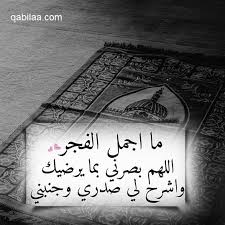 qabilaa.com
ما اجمل الفجر
اللهم بصرني بما يرضيك
واشرح لي صدري وجنبني